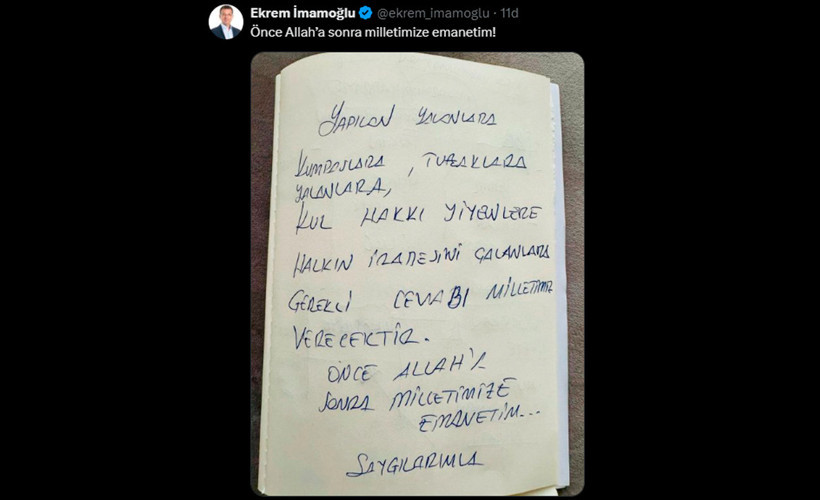 Ekrem İmamoğlu @ekrem_imamoglu · 11d
Önce Allah'a sonra milletimize emanetim!
YAPILAN YALANLARA
KUMPASLARA, TUZAKLARA
YALANLARA,
KUL HAKKI YİYENLERE
HALKIN İRADESİNİ ÇALANLARA
GEREKLİ CEVABI MİLLETİMİZ
VERECEKTİR.
ÖNCE ALLAH'A
SONRA MİLLETİMİZE
EMANETİM...
SAYGILARIMLA